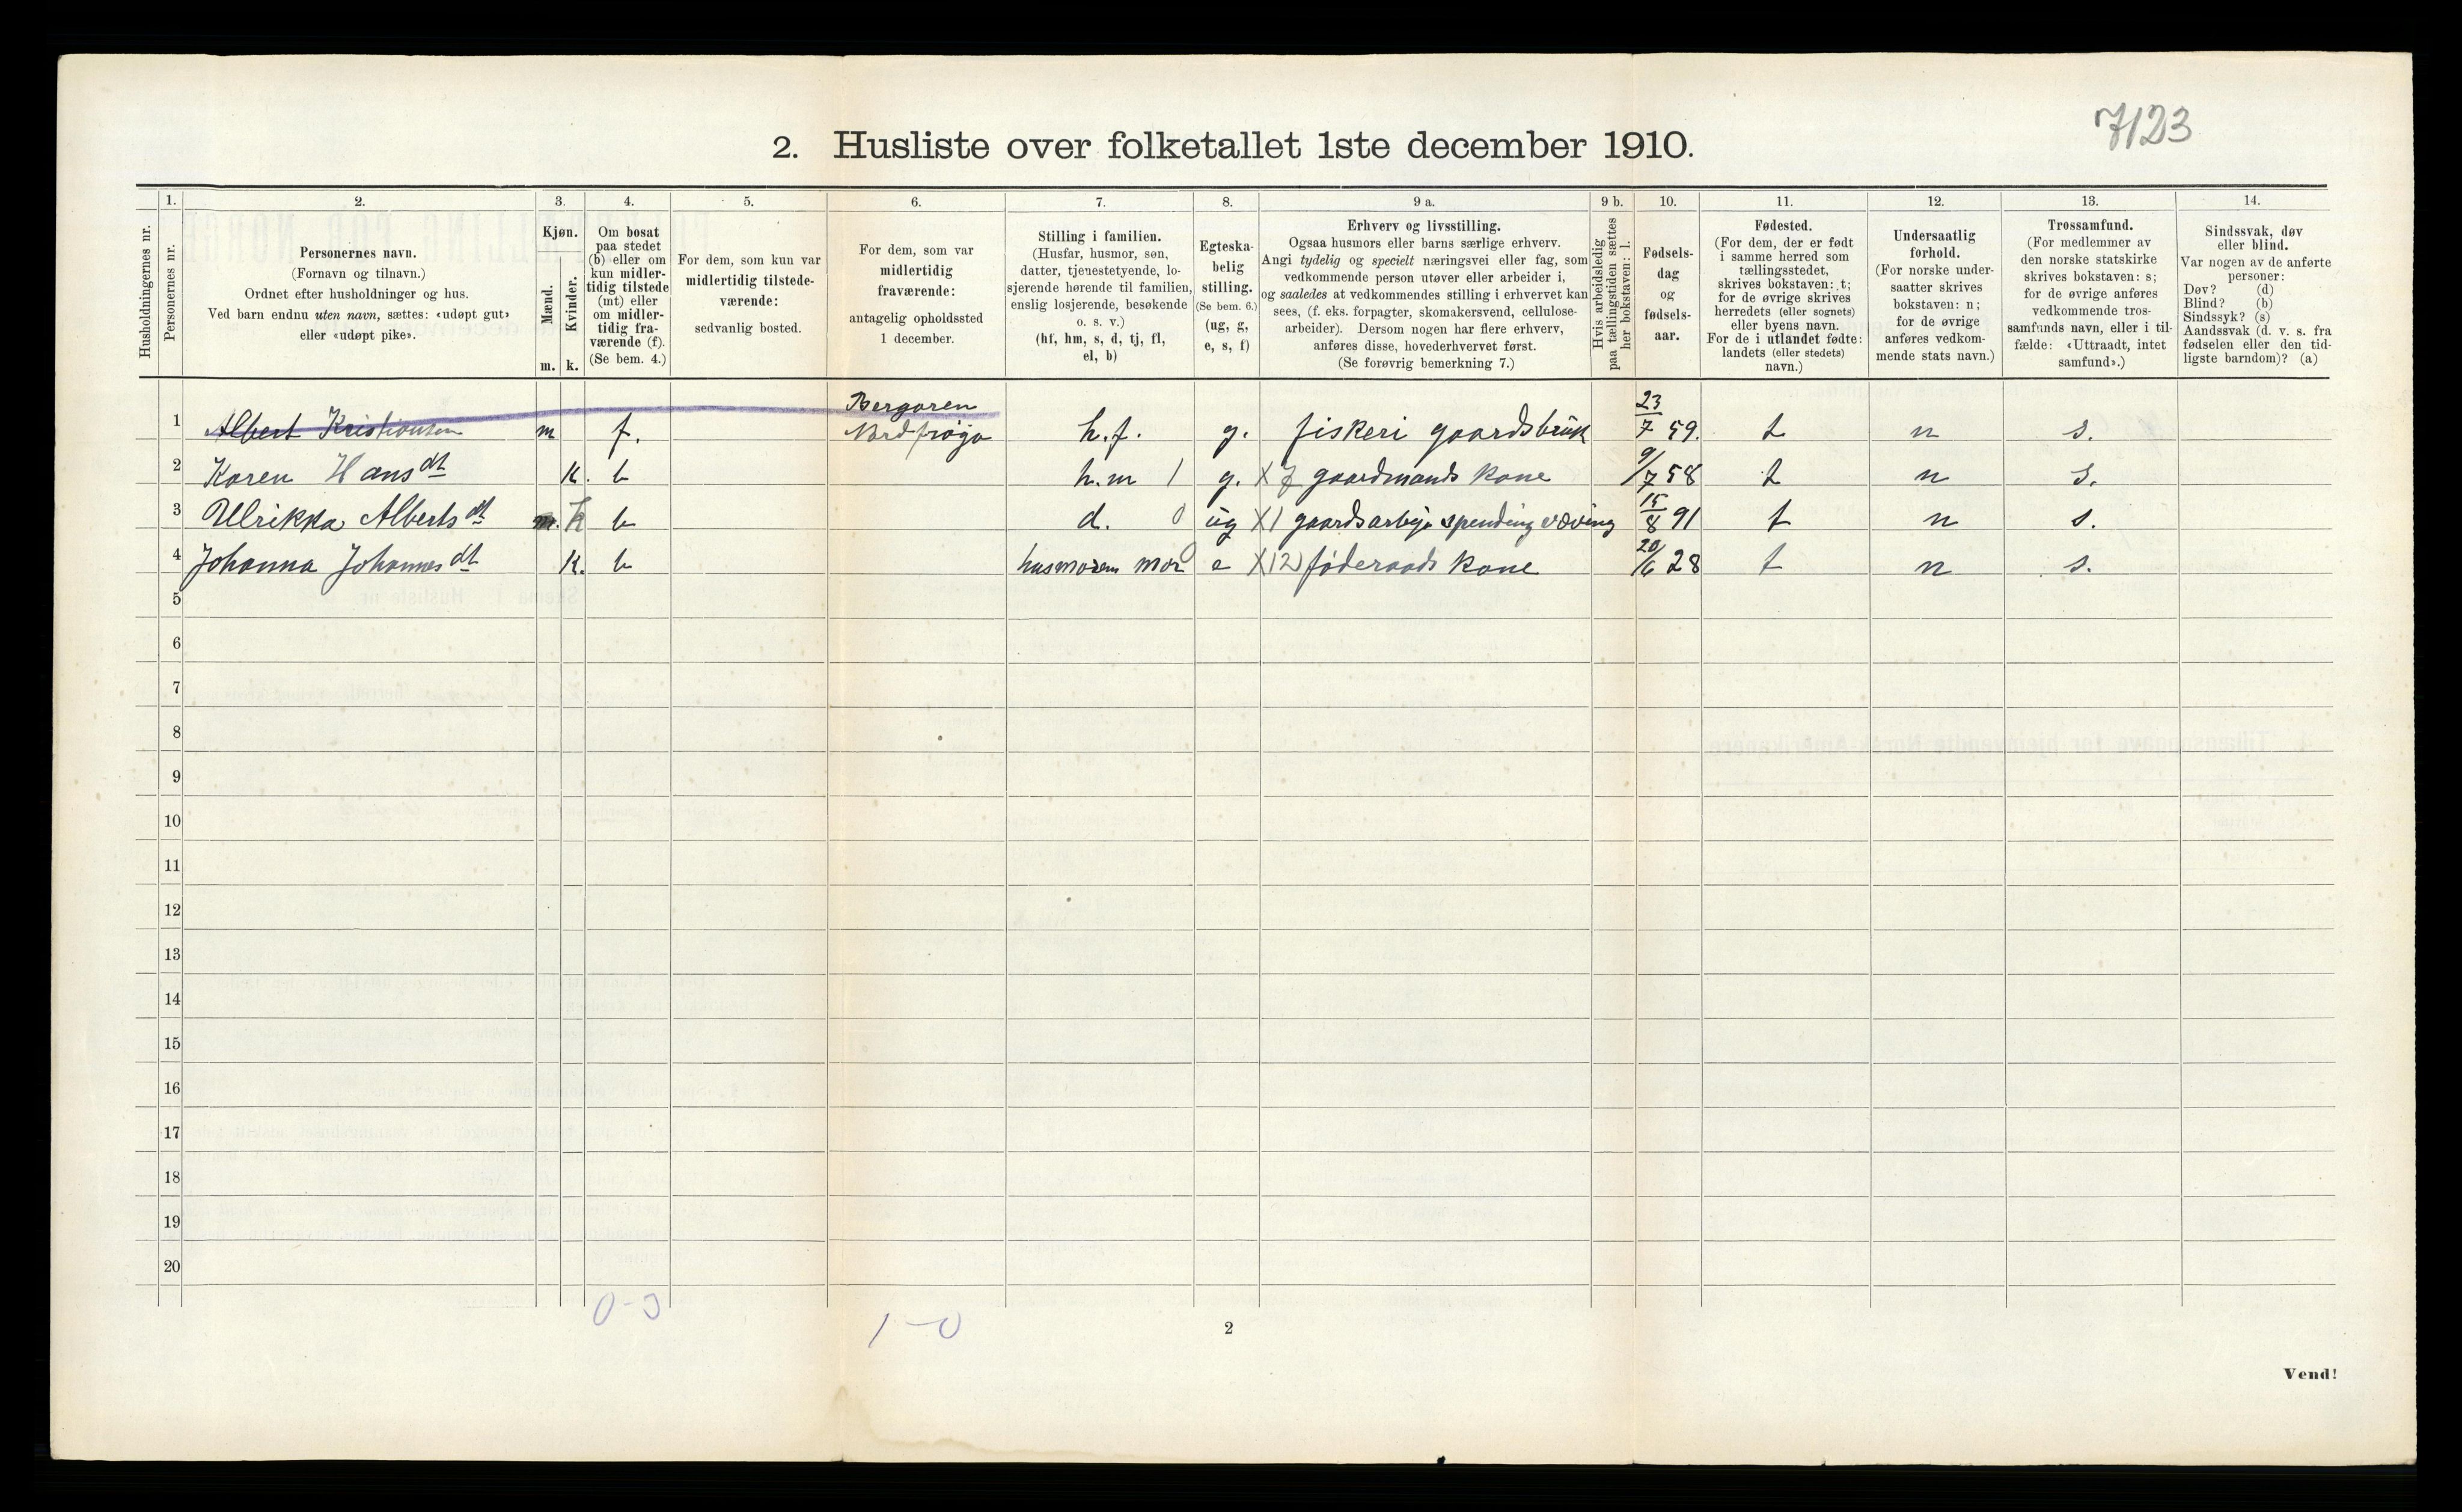 7123
2. Husliste over folketallet 1ste december 1910.
Husholdningernes nr.
1.
Personernes nr.
2.
Personernes navn.
(Fornavn og tilnavn.)
Ordnet efter husholdninger og hus.
Ved barn endnu uten navn, sættes: «udøpt gut»
eller «udøpt pike».
3.
Kjøn.
Mænd.
m.
Kvinder.
k.
4.
Om bosat
paa stedet
(b) eller om
kun midler-
tidig tilstede
(mt) eller
om midler-
tidig fra-
værende (f).
(Se bem. 4.)
5.
For dem, som kun var
midlertidig tilstede-
værende:
sedvanlig bosted.
6.
For dem, som var
midlertidig
fraværende:
antagelig opholdssted
1 december.
7.
Stilling i familien.
(Husfar, husmor, søn,
datter, tjenestetyende, lo-
sjerende hørende til familien,
enslig losjerende, besøkende
o. s. v.)
(hf, hm, s, d, tj, fl,
el, b)
8.
Egteska-
belig
stilling.
(Se bem. 6.)
(ug, g,
e, s, f)
9 a.
Erhverv og livsstilling.
Ogsaa husmors eller barns særlige erhverv.
Angi tydelig og specielt næringsvei eller fag, som
vedkommende person utøver eller arbeider i,
og saaledes at vedkommendes stilling i erhvervet kan
sees, (f. eks. forpagter, skomakersvend, cellulose-
arbeider). Dersom nogen har flere erhverv,
anføres disse, hovederhvervet først.
(Se forøvrig bemerkning 7.)
9 b.
Hvis arbeidsledig
paa tællingstiden sættes
her bokstaven: l.
10.
Fødsels-
dag
og
fødsels-
aar.
11.
Fødested.
(For dem, der er født
i samme herred som
tællingsstedet,
skrives bokstaven: t;
for de øvrige skrives
herredets (eller sognets)
eller byens navn.
For de i utlandet fødte:
landets (eller stedets)
navn.)
12.
Undersaatlig
forhold.
(For norske under-
saatter skrives
bokstaven: n;
for de øvrige
anføres vedkom-
mende stats navn.)
13.
Trossamfund.
(For medlemmer av
den norske statskirke
skrives bokstaven: s;
for de øvrige anføres
vedkommende tros-
samfunds navn, eller i til-
fælde: «Uttraadt, intet
samfund».)
14.
Sindssvak, døv
eller blind.
Var nogen av de anførte
personer:
Døv? (d)
Blind? (b)
Sindssyk? (s)
Aandssvak (d. v. s. fra
fødselen eller den tid-
ligste barndom)? (a)
1 Albert Kristiansen m f. Bergøren Nordfrøya h.f. g. fiskeri gaardsbruk 23/7 59. t n s.
2 Karen Hansdt k. b h.m 1 g. X 7 gaardmands kone 9/7 58 t n s.
3 Ulrikka Albertsdt m. k b d. 0 ug X 1 gaardsarbeje spending væving 15/8 91 t n s.
4 Johanna Johannesdt k. b husmoren mor 0 e X 12) føderaads kone 20/6 28 t n s.
5
6
7
8
9
10
11
12
13
14
15
16
17
18
19
20
0-3
1-0
2
Vend!